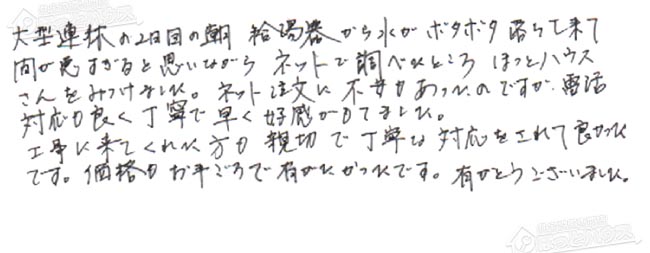 大型連休の2日目の朝 給湯器から水がボタボタ落ちて来て
間が悪すぎると思いながら ネットで調べたところ ほっとハウス
さんをみつけました。ネット注文に不安もあったのですが、電話
対応も良く丁寧で早く好感がもてました。
工事に来てくれた方も親切で丁寧な対応をされて良かった
です。価格もお手ごろで有がたかったです。有がとうございました。
ほっとハウス